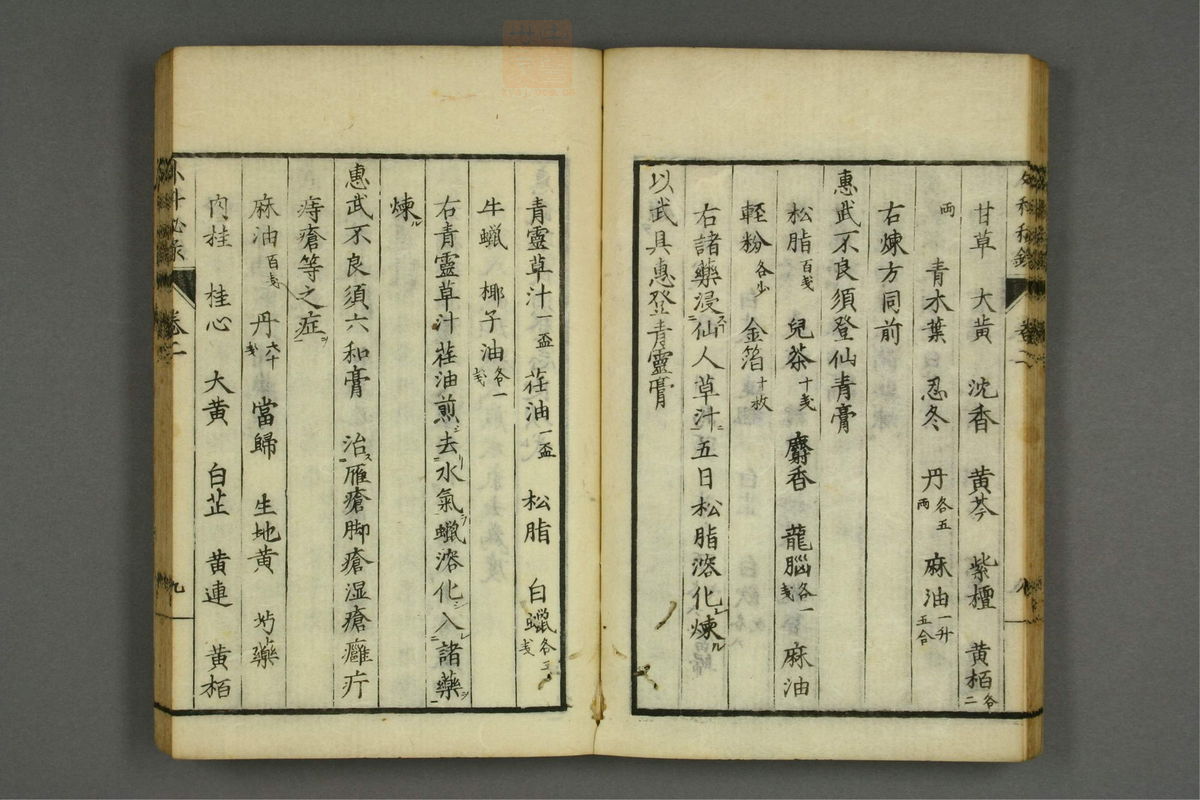 甘草 大黄 沈香 黄芩 紫檀 黄栢各二
両 青木葉 忍冬 丹各五両 麻油一升五合
右煉方同前
惠武不良須登仙青膏
松脂百戔 兒茶十戔 麝香 龍腦各一戔 麻油
軽粉各少 金箔十枚
右諸藥浸仙人草汁五日松脂溶化煉ル
以武具惠登青靈膏
青靈草汁一盃 荏油一盃 松脂 白蠟各五戔
牛蠟 椰子油各一戔
右青靈草汁荏油煎去水氣蠟溶化入諸藥
煉ル
惠武不良須六和膏 治雁瘡脚瘡湿瘡癰疔
痔瘡等之症
麻油百戔 丹六十戔 當歸 生地黄 芍藥
肉桂 桂心 大黄 白芷 黄連 黄栢
外科秘录 卷二 九